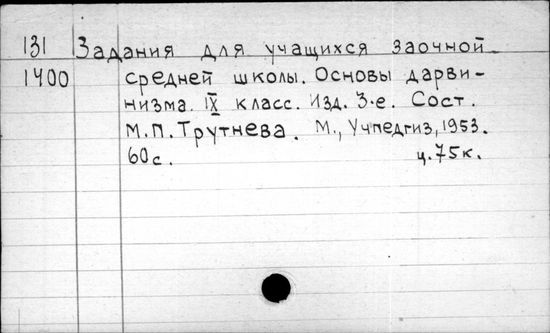 131 Задания для учащихся заочной
1400 средней школы. Основы дарви-
низма. IX класс. Изд. 3-е. Сост.
М.П. Трутнева. М., Учпедгиз, 1953.
60 с. ц. 75 к.